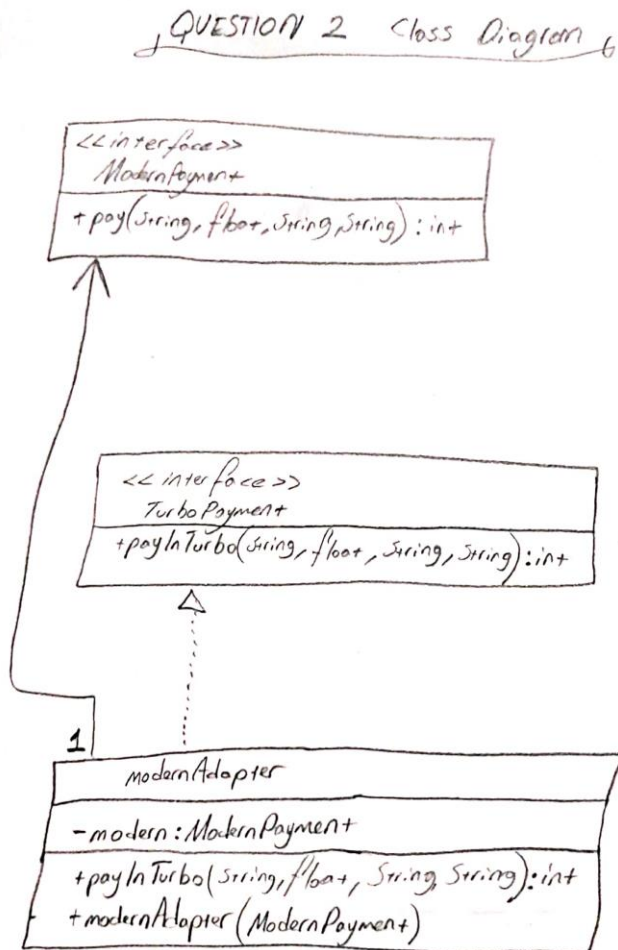 QUESTION 2 Class Diagram
<<interface>>
ModernPayment
+pay(String, float, String, String): int
<<interface>>
TurboPayment
+payInTurbo(String, float, String, String): int
1
modernAdapter
-modern: ModernPayment
+payInTurbo(String, float, String, String): int
+modernAdapter(ModernPayment)